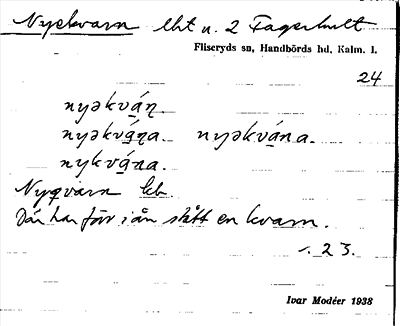 Nyekvarn lht u. 2 Fagerhult
Fliseryds sn, Handbörds hd, Kalm. l.
24
nyəkván.
nyəkvána. nyəkvána.
nykvána.
Nyqvarn kb.
Där har förr i ån stått en kvarn.
23.
Ivar Modéer 1938